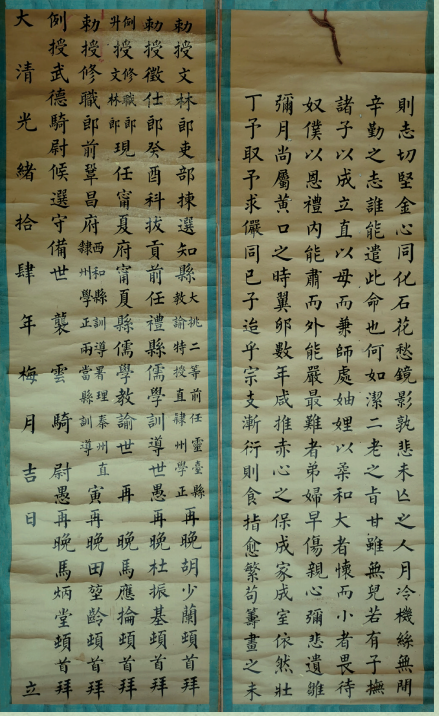 則志切堅金心同化石花愁鏡影孰悲未亾之人月冷機絲無間
辛勤之志誰能遣此命也何如潔二老之旨甘雖無兒若有子撫
諸子以成立直以母而兼師處妯娌以柔和大者懷而小者畏待
奴僕以恩禮內能肅而外能嚴最難者弟婦早傷親心彌悲遺雛
彌月尚屬黃口之時翼卵數年咸推赤心之保成家成室依然壯
丁予取予求儼同已子迨乎宗支漸衍則食指愈繁苟籌畫之未
勅授文林郎吏部揀選知縣大挑二等前任靈臺縣教諭特授直隸州學正再晚胡少蘭頓首拜
勅授徵仕郎癸酉科拔貢前任禮縣儒學訓導世愚再晚杜振基頓首拜
例授修職郎升授文林郎現任甯夏府甯夏縣儒學教諭世再晚馬應掄頓首拜
勅授修職郎前鞏昌府西和縣訓導署理秦州直隸州學正兩當縣訓導寅再晚田堃齡頓首拜
例授武德騎尉候選守備世襲雲騎尉愚再晚馬炳堂頓首拜
大清光緒拾肆年梅月吉日立